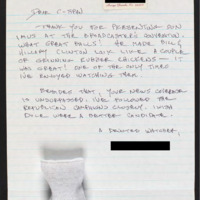 DEAR C-SPAN
THANK YOU FOR PRESENTING DON
IMUS AT THE BROADCASTERS CONVENTION.
WHAT GREAT BALLS! HE MADE BILL &
HILLARY CLINTON LOOK LIKE A COUPLE
OF RUBBER CHICKENS — IT
WAS GREAT! ONE OF THE ONLY TIMES
I'VE ENJOYED WATCHING THEM.
BESIDES THAT, YOUR NEWS COVERAGE
IS UNSURPASSED. I'VE FOLLOWED THE
REPUBLICAN CAMPAIGNS CLOSELY. I WISH
DOLE WERE A BETTER CANDIDATE.
A DEVOTED WATCHER,